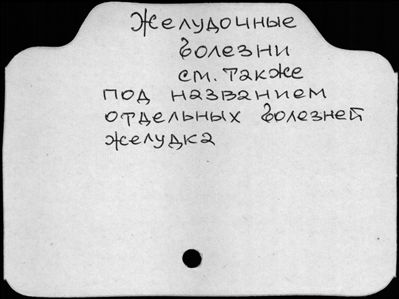 Желудочные
болезни
см. также
под названием
отдельных болезней
желудка